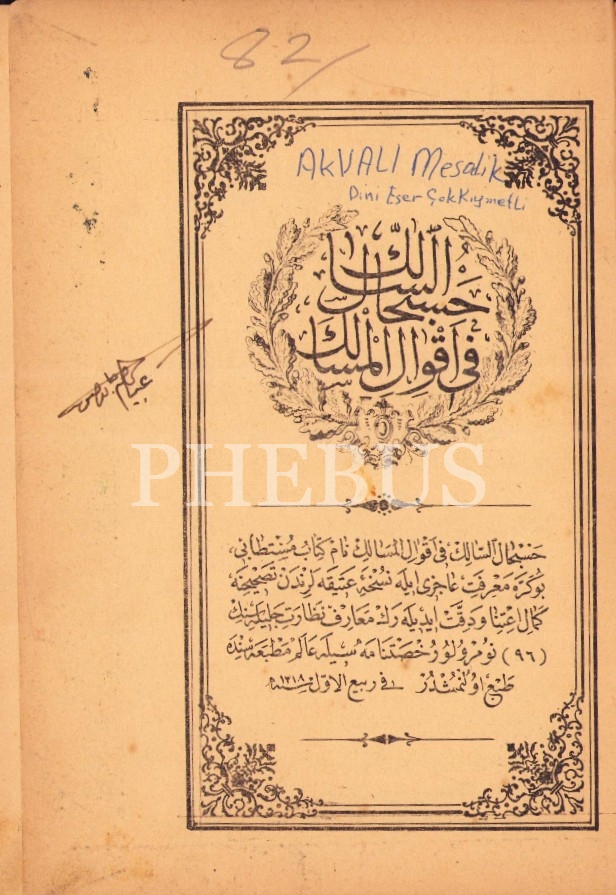 82
AKVALI Mesalik
Dini Eser Çok Kıymetli
حسبحال السالك
فى اقوال المسالك
PHEBUS
حسبحال السالك فى اقوال المسالك نام كتاب مستطابى،
بو كره معرفت عاجزى ايله نسخهٔ عتيقه لرندن تصحيحنه
كمال اعتنا و دقت ايديله رك معارف نظارت جليله سنك
(٩٦) نومرولو رخصتنامه سيله عالم مطبعه سنده
طبع اولنمشدر فى ربيع الاول سنه ١٣١٨